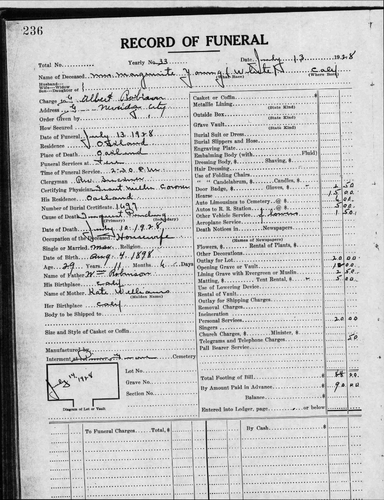 236
RECORD OF FUNERAL
Total No. Yearly No. 33 Date July 12 1928
Name of Deceased Mrs. Marguerite Young (White) Calif
Husband—
Wife—Widow
Son—Daughter of (Where Born)
Charge to Albert
Address City
Order Given by
How Secured
Date of Funeral July 13 1928
Residence Oakland
Place of Death Oakland
Funeral Services at
Time of Funeral Service 2:30 P.M.
Clergyman Rev.
Certifying Physician Grant Miller Coroner
His Residence Oakland
Number of Burial Certificate
Cause of Death (Primary) (Secondary)
Date of Death July 10. 1928
Occupation of the Deceased Housewife
Single or Married Mar. Religion
Date of Birth Aug. 4 1898
Age 29 Years 11 Months 6 Days
Name of Father Wm Robinson
His Birthplace Calif
Name of Mother Kate Williams
(Maiden Name)
Her Birthplace Calif
Body to be Shipped to
Size and Style of Casket or Coffin
Manufactured by
Interment at Cemetery
Lot No.
Grave No.
Section No.
Diagram of Lot or Vault
Casket or Coffin
Metallic Lining
(State Kind)
Outside Box
(State Kind)
Grave Vault
(State Kind)
Burial Suit or Dress
Burial Slippers and Hose
Engraving Plate
Embalming Body (with Fluid)
Dressing Body, $ Shaving, $
Hair Dressing
Use of Folding Chairs
" " Candelabrum, $ Candles, $
Door Badge, $ Gloves, $ 2 50
Hearse 15 00
Auto Limousines to Cemetery @ $
Autos to R. R. Station @ $ 5 00
Other Vehicle Service flowers 1 50
Aeroplane Service
Death Notices in Newspapers
(Names of Newspapers)
Flowers, $ Rental of Plants, $
Other Decorations
Outlay for Lot 20 00
Opening Grave or Vault 18 00
Lining Grave with Evergreen or Muslin 2 50
Matting, $ Tent Rental, $ 5 00
Use of Lowering Device
Rental of Vault
Outlay for Shipping Charges
Removal Charges
Incineration
Personal Services 20 00
Singers
Church Charges, $ Minister, $
Telegrams and Telephone Charges 50
Pall Bearer Service
Total Footing of Bill $
By Amount Paid in Advance $ 90 00
Balance $
Entered into Ledger, page or below
To Funeral Charges Total, $ By Cash $